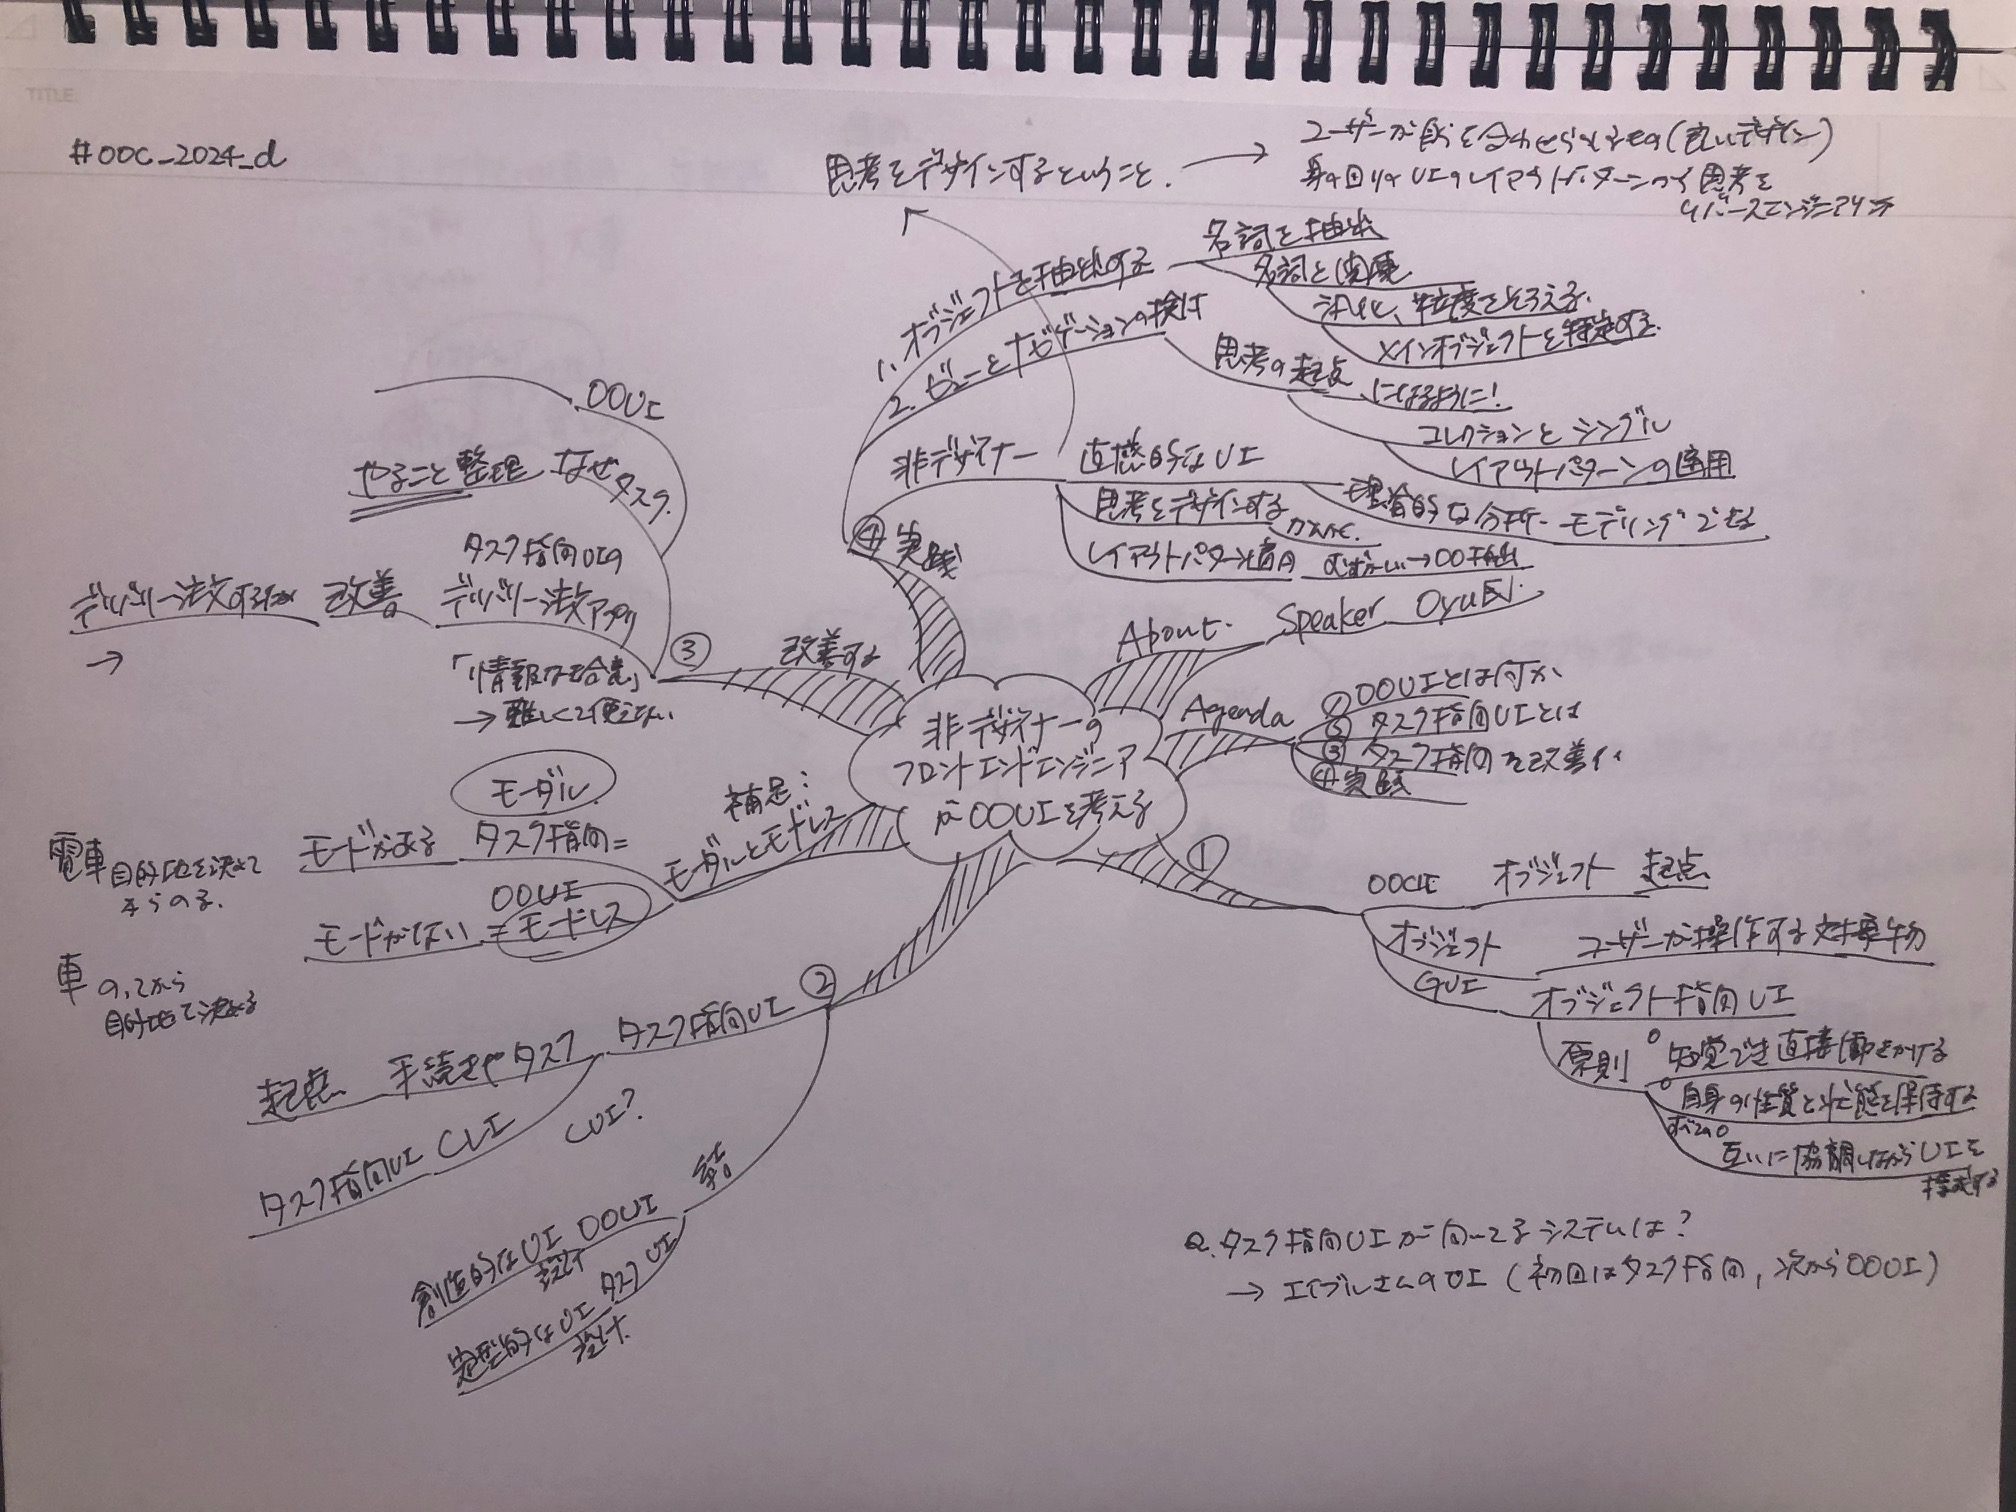 TITLE:
#OOC_2024_d
思考をデザインするということ. →
ユーザーが を合わせられるもの(良いデザイン)
身の回りの UIのレイアウトパターンから 思考を
リバースエンジニアリング
非デザイナーの
フロントエンドエンジニア
が OOUIを考える
About. Speaker Oyu氏.
Agenda
① OOUIとは何か
② タスク指向UIとは
③ タスク指向を改善
④ 実践
①
OOUI オブジェクト 起点
オブジェクト ユーザーが操作する対象物
GUI オブジェクト指向UI
原則
○ 知覚でき直接働きかける
○ 自身の性質と状態を保持する
すべての○
互いに協調しながらUIを
構成する
Q.タスク指向UIが向いてるシステムは?
→ エイブルさんのUI (初回はタスク指向, 次からOOUI)
②
タスク指向UI 手続きやタスク 起点
CUI?
CLI タスク指向UI
結
OOUI 創造的なUI
設計
タスクUI 定型的なUI
設計.
補足:
モーダルとモードレス
モーダル
タスク指向= モードがある
電車 目的地を決めて
からのる.
OOUI
= モードレス モードがない
車 のってから
目的地を決める
③ 改善する
OOUI
なぜタスク. やること整理
タスク指向UIの
デリバリー注文アプリ 改善 デリバリー注文するだけ
→
「情報な
→ 難しくて使えない.
④ 実践
1. オブジェクトを抽出する
名詞を抽出
名詞と
汎化、粒度をそろえる.
メインオブジェクトを特定する.
2. ビューとナビゲーションの検討
思考の起点 になるように!
コレクションと シングル
レイアウトパターンの適用
非デザイナー 直感的なUI
理論的な分析・モデリングできる
思考をデザインする
レイアウトパターン適用 むずかしい→OO抽出